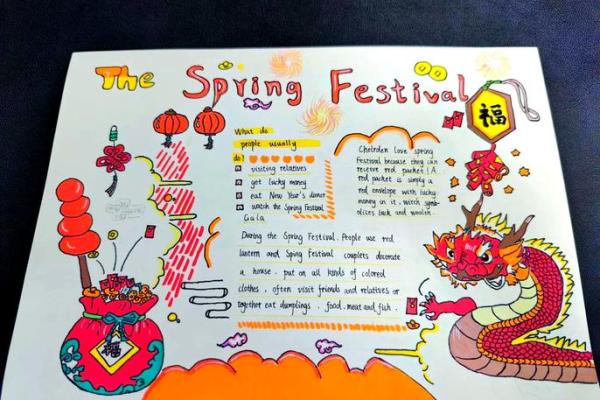 The Spring Festival
福
What do
people usually
do?
visiting relatives
get lucky money
eat New Year's dinner
watch the Spring Festival
Gala
Chelrden love spring
festival because they can
reserve red packet! A
red packet is simply a
red envelope with lucky
money in it. witch symb-
olizes luck and
During the Spring Festival. People use red
lantern and Sping Festival couplets decorate
a house. put on all kinds of colored
clothes, often visit friends and relatives or
together eat dumplings. food. meat and fish.
福